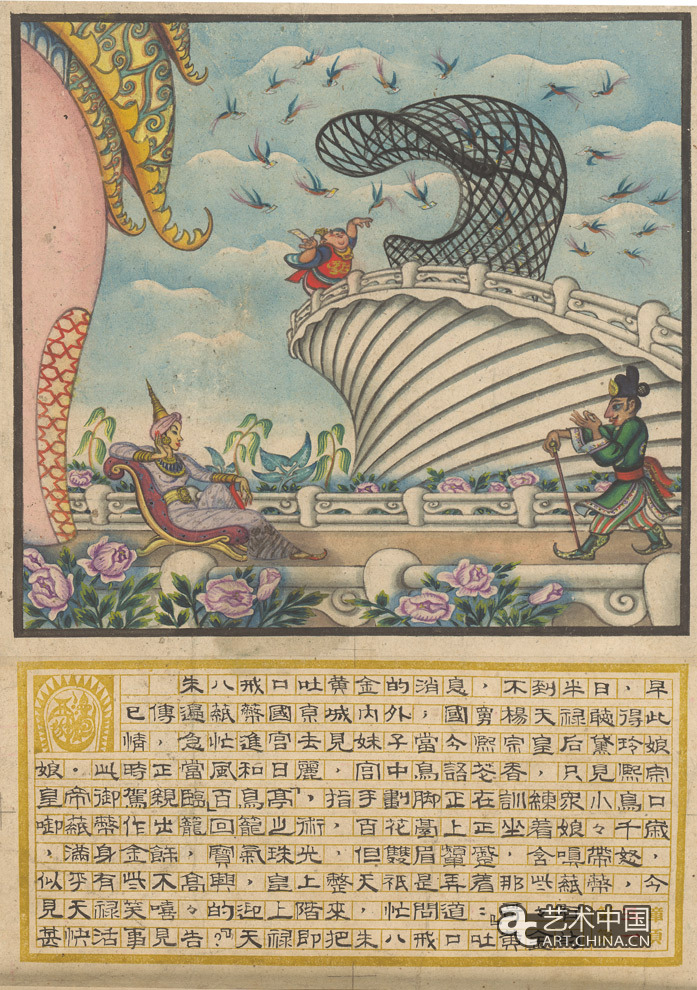 朱八戒口吐黃金的消息,不到半日,早
已傳遍紙幣國京城內外,國舅楊天祿聽得此
情,急忙進宮去見妹子當今熙宗皇后黛玲娘
娘。此時正當風和日麗,宮中鳥語花香,只見熙宗
皇帝御駕親臨百鳥亭,指手劃脚正在訓練衆小鳥口
啣紙幣作出籠回籠之術,百花臺上正坐着娘々千歲
,滿身金飾,寶氣珠光,但雙眉顰蹙,含嗔帶怒,
似乎有些不高興,皇上整天祇是弄着那些紙幣,今
見天祿笑嘻々的迎上階來,忙問道:「
甚快活事見告?」天祿即把朱八戒口吐黃
艺术中国
ART.CHINA.CN